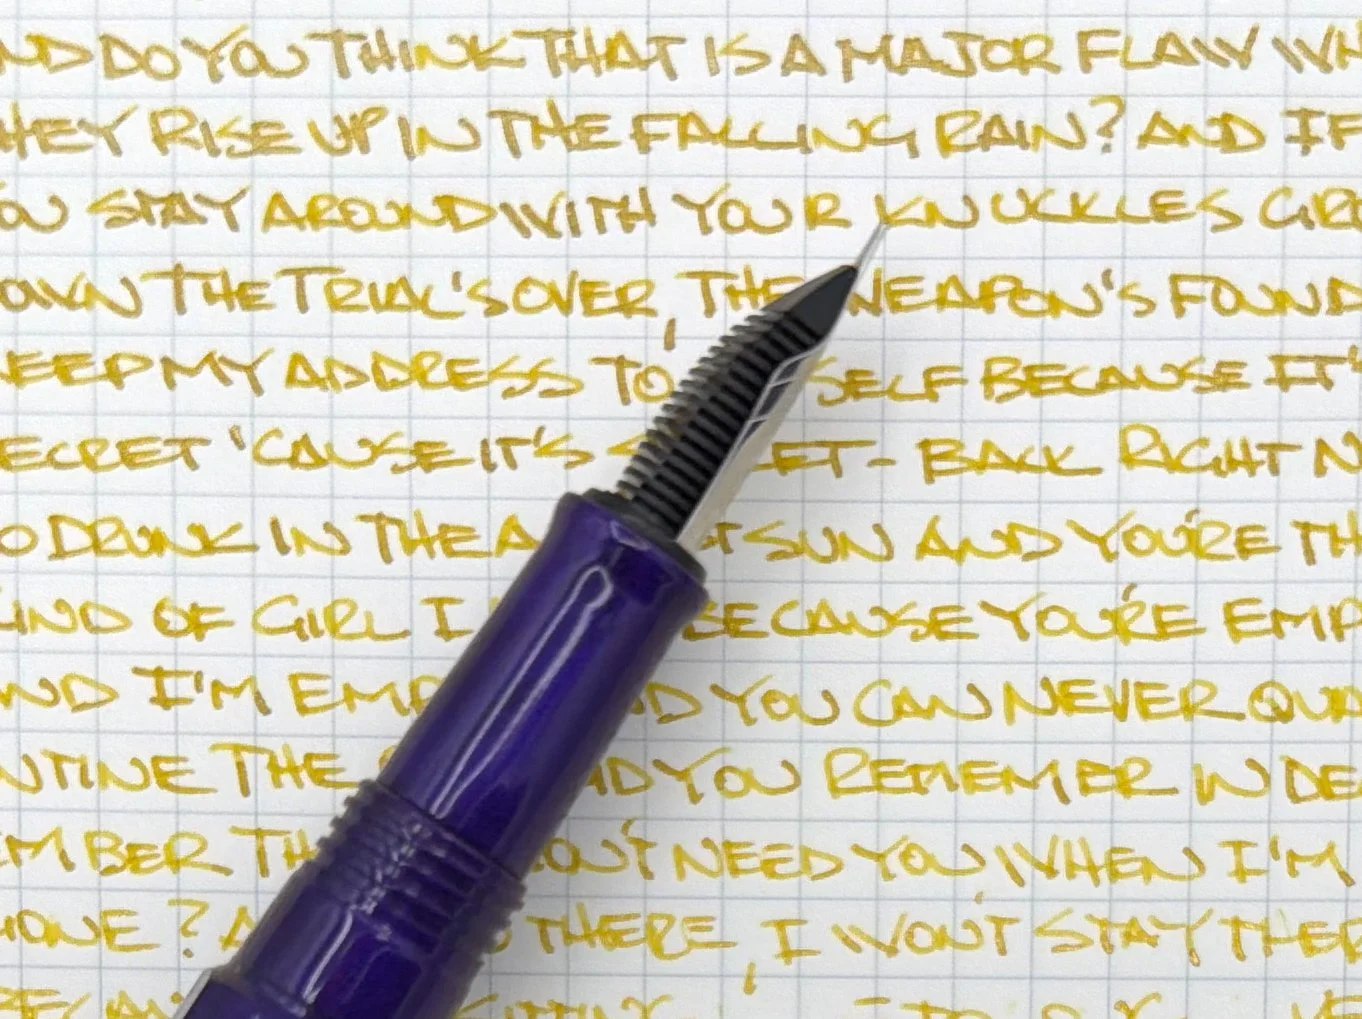 ND DO YOU THINK THAT IS A MAJOR FLAW WH
HEY RISE UP IN THE FALLING RAIN? AND IF
OU STAY AROUND WITH YOUR KNUCKLES GRO
OWN THE TRIAL'S OVER, THE WEAPON'S FOUND
EEP MY ADDRESS TO SELF BECAUSE IT'
ECRET 'CAUSE IT'S S ET- BACK RIGHT N
O DRUNK IN THE A ST SUN AND YOU'RE TH
IND OF GIRL I BECAUSE YOU'RE EMP
ND I'M EMP ND YOU CAN NEVER QUA
NTINE THE ND YOU REMEMER IN DE
MBER TH DON'T NEED YOU WHEN I'M
HONE? A THERE, I WON'T STAY THER